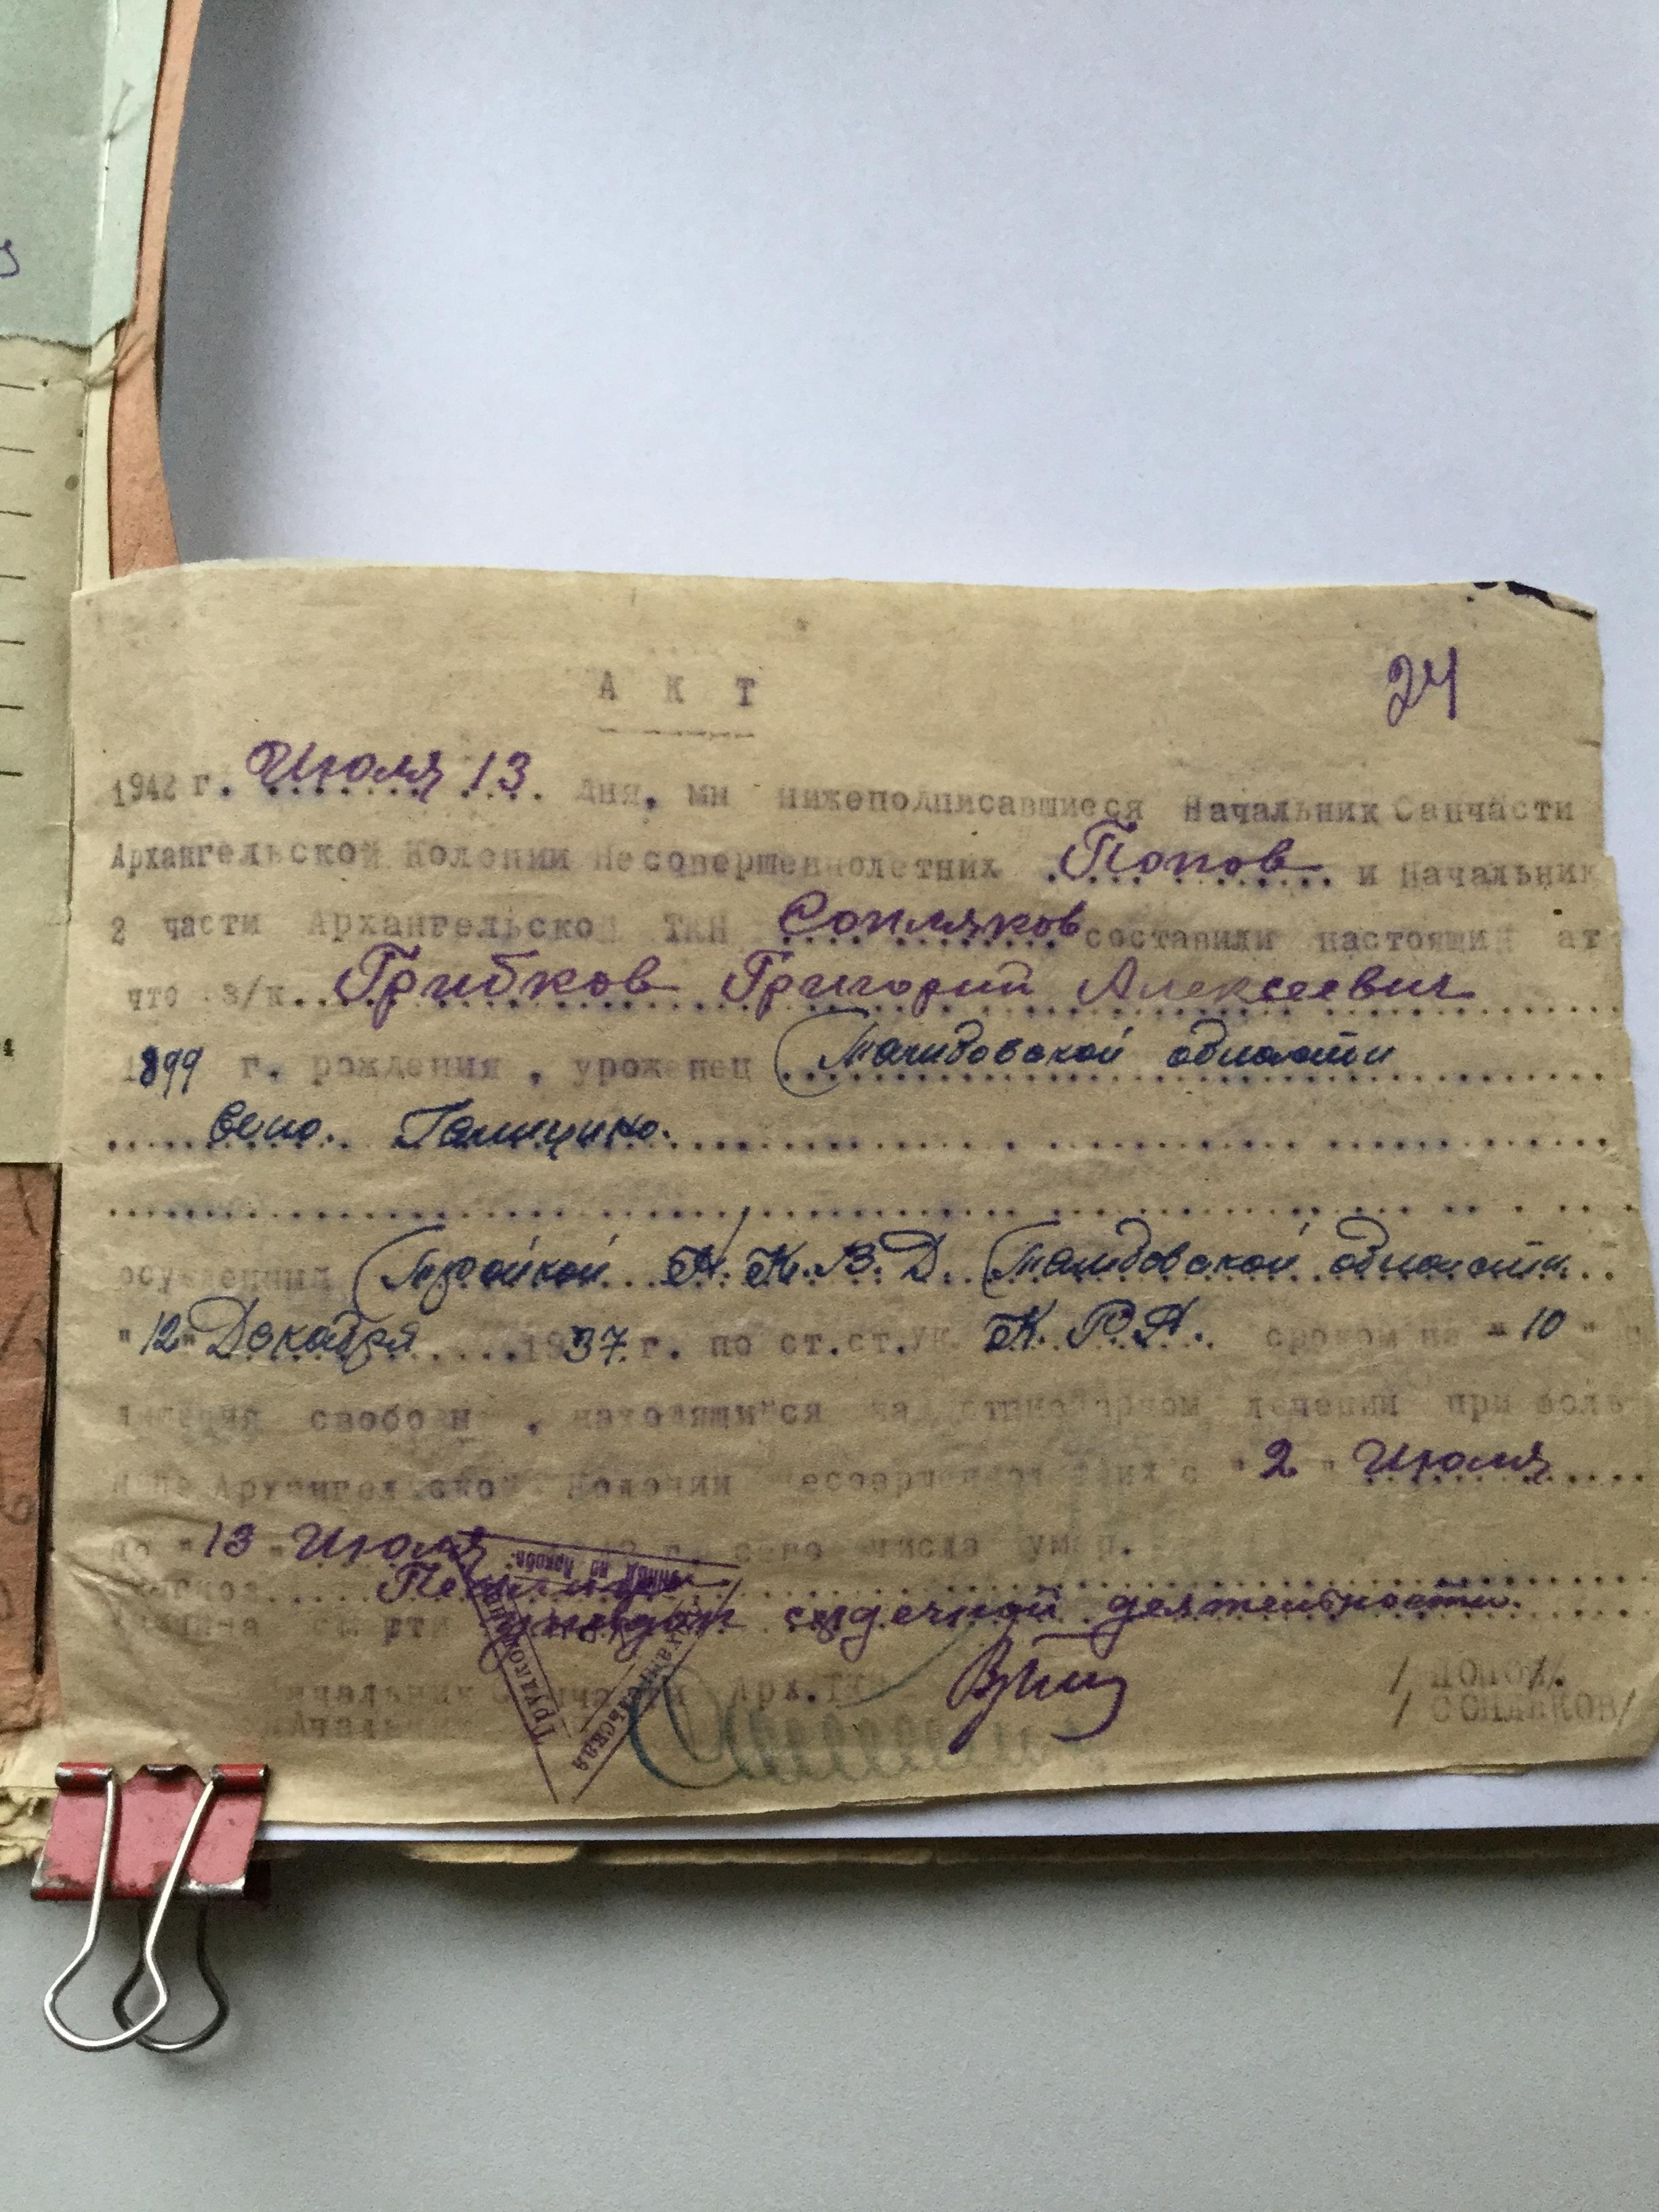 24
А К Т
1942 г. Июля 13 дня, мы нижеподписавшиеся Начальник Санчасти
Архангельской Колонии Несовершеннолетних Попов и Начальник
2 части Архангельской ТКН Сопляков составили настоящий ат
что з/к. Грибков Григорий Алексеевич
1899 г. рождения, уроженец Тамбовской области
село. Галицино.
осужденный Тройкой Н.К.В.Д. Тамбовской области
"12" Декабря 1937 г. по ст.ст. УК К.Р.А. сроком на "10"
лишения свободы, находящийся на стационарном лечении при
Архангельской Колонии с "2" Июля
по "13" Июля г. сего числа умер.
Пе
смерти упадок сердечной деятельности.
Начальник Санчасти Арх. ТКН /ПОПОВ/.
Начальник /СОПЛЯКОВ/
Архангельская